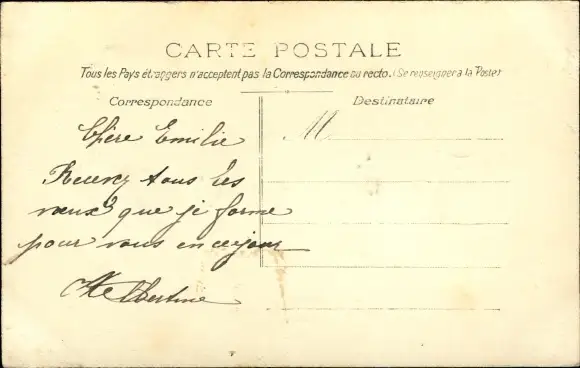 CARTE POSTALE
Tous les Pays étrangers n'acceptent pas la Correspondance au recto. (Se renseigner à la Poste)
Correspondance
Destinataire
M
Chère Emilie
Recevez tous les
vœux que je forme
pour vous en ce jour
Albertine